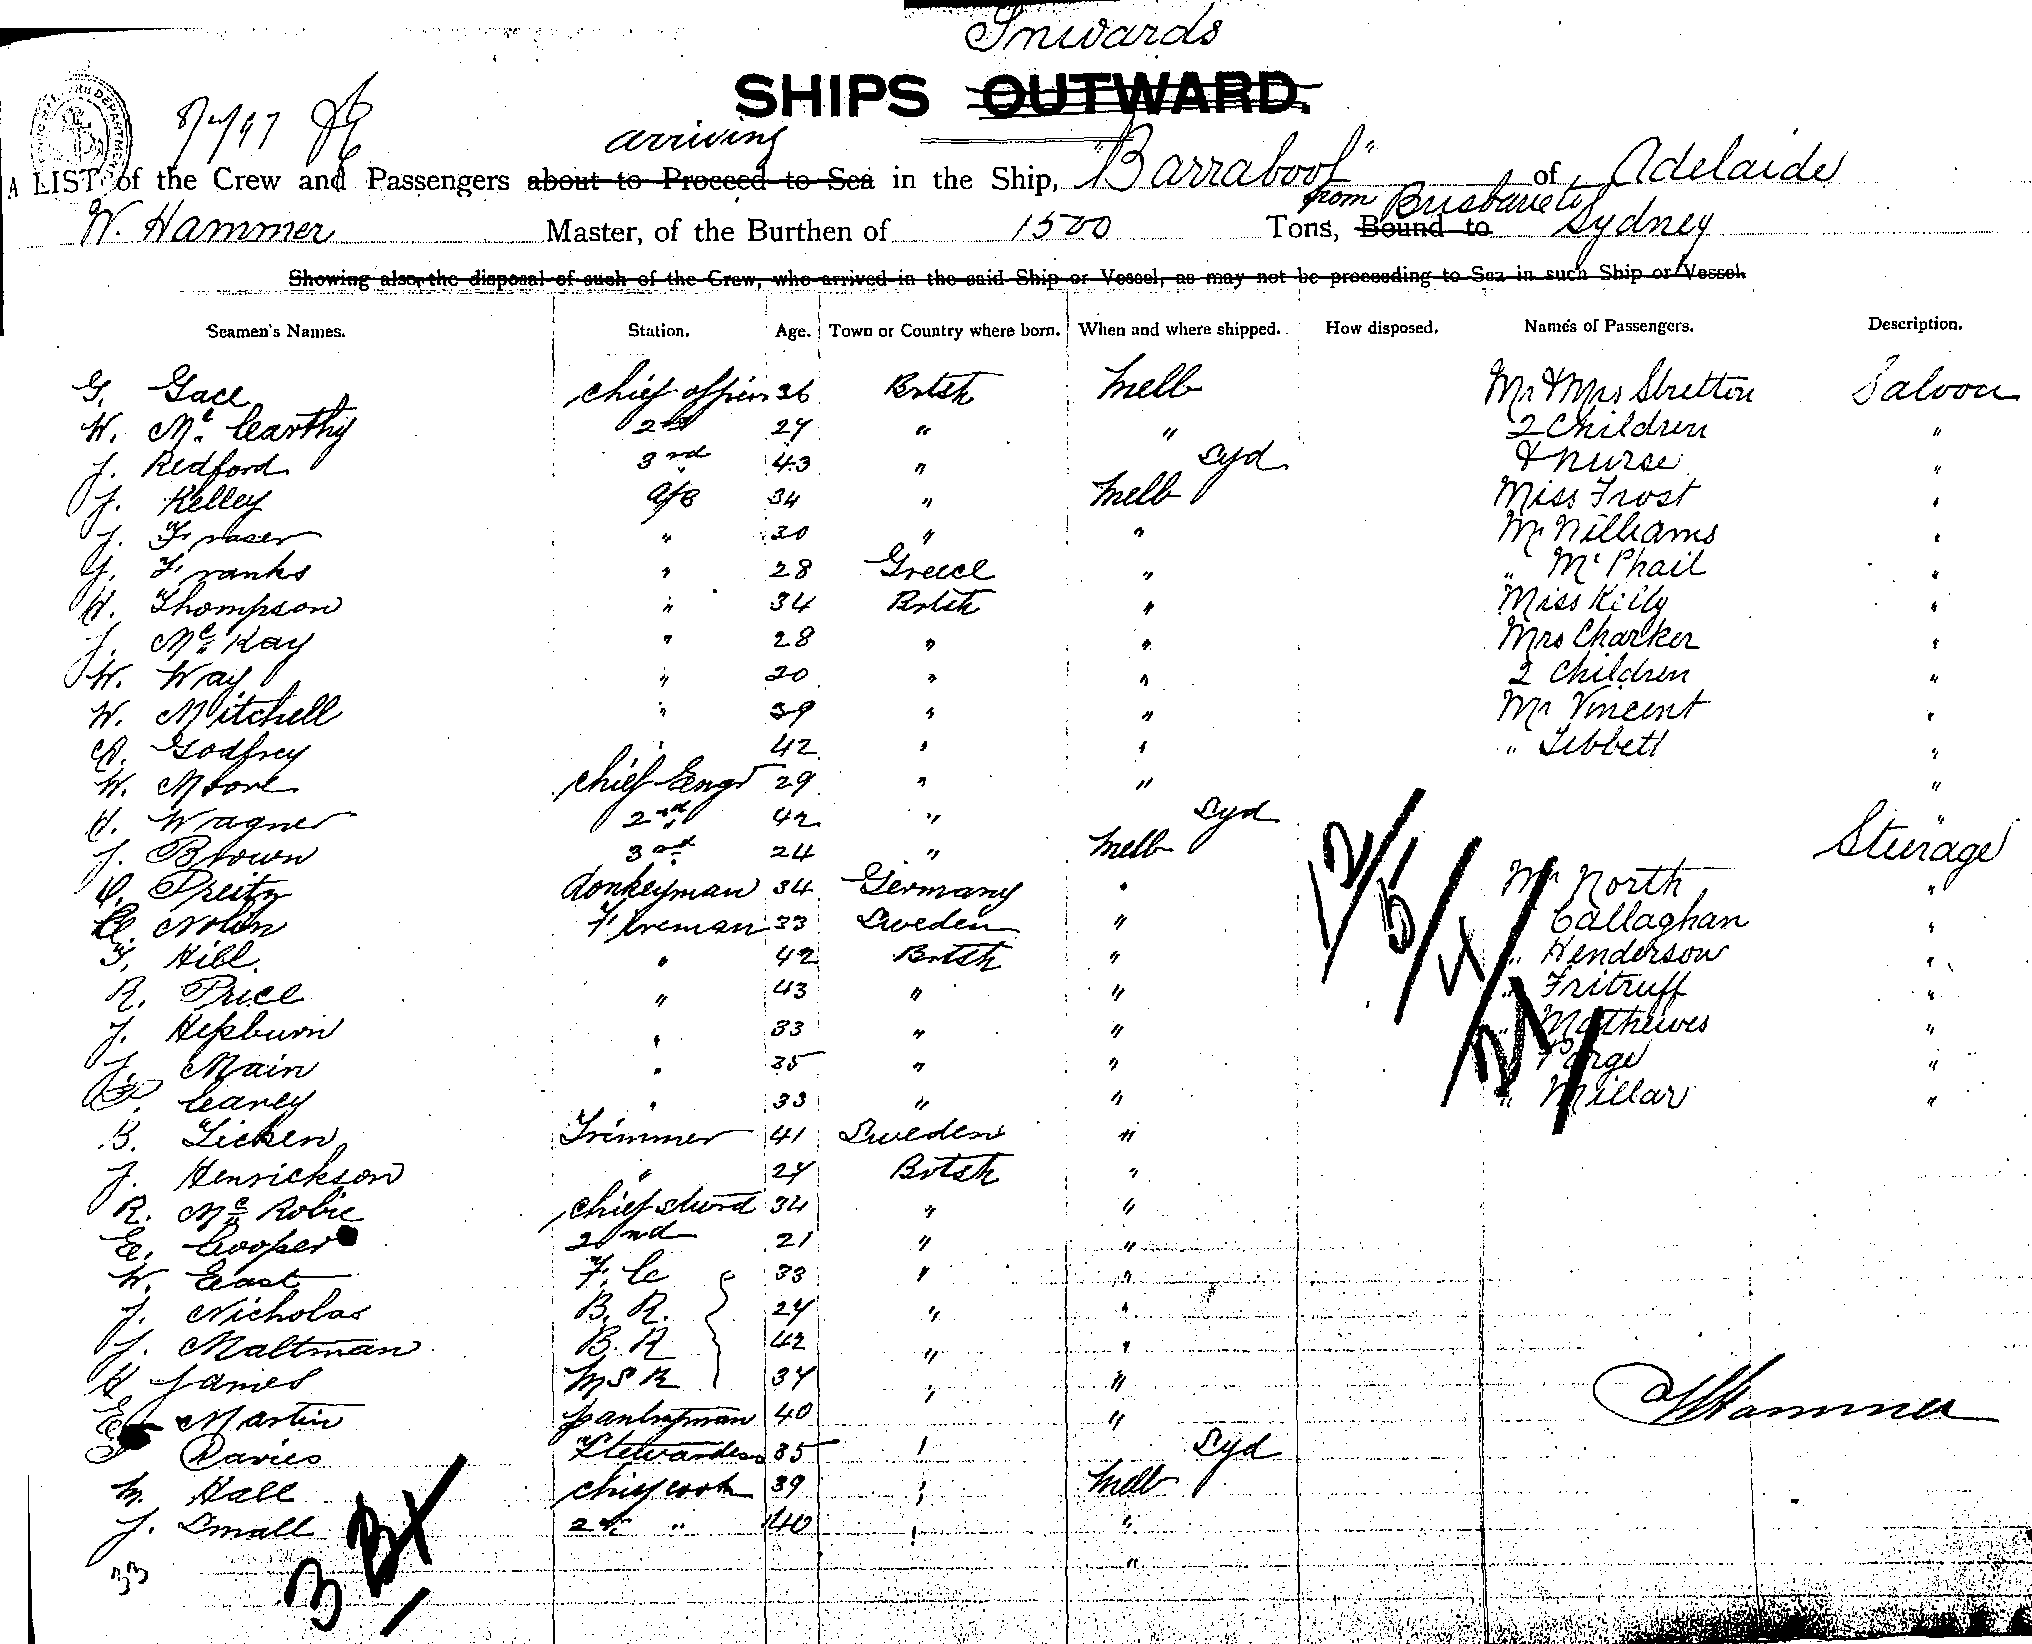 Inwards
SHIPS OUTWARD.
8/4/97
arriving
A LIST of the Crew and Passengers about to Proceed to Sea in the Ship, "Barrabool" of Adelaide
from Brisbane to
W. Hammer Master, of the Burthen of 1500 Tons, Bound to Sydney
Showing also, the disposal of such of the Crew, who arrived in the said Ship or Vessel, as may not be proceeding to Sea in such Ship or Vessel.
Seamen's Names. Station. Age. Town or Country where born. When and where shipped. How disposed. Names of Passengers. Description.
G. Gace chief officer 36 Brtsh Melb Mr & Mrs Stretton Saloon
W. McCarthy 2nd 27 " " 2 Children "
J. Redford 3rd 43 " Syd & nurse "
J. Kelley A/B 34 " Melb Miss Frost "
J. Fraser " 30 " " Mr Williams "
G. Franks " 28 Greece " " McPhail "
H. Thompson " 34 Brtsh " Miss Kelly "
J. McKay " 28 " " Mrs Charker "
W. Way " 30 " " 2 Children "
W. Mitchell " 39 " " Mr Vincent "
A. Godfrey " 42 " " " Tibbett "
W. Moore chief Engr 29 " " "
H. Wagner 2nd 42 " Syd "
J. Brown 3rd 24 " Melb Steerage
C. Preitz donkeyman 34 Germany " Mr North "
C. Nolin Fireman 33 Sweden " Callaghan "
F. Hill " 42 Brtsh " " Henderson "
R. Price " 43 " " " Fritruff "
J. Hepburn " 33 " " " Matthewes "
J. Main " 35 " " "
F. Carey " 33 " " " Millar "
B. Licken Trimmer 41 Sweden "
J. Henrickson " 27 Brtsh "
R. McRobie chief stwrd 34 " "
E. Cooper 2nd 21 " "
W. East F. C 33 " "
J. Nicholas B. R. 27 " "
J. Maltman B. R 42 " "
H James M S R 37 " "
E Martin pantryman 40 " "
Davies Stewardess 35 " Syd
M. Hall chief cook 39 " Melb
J. Small 2nd " 40 " "
33 "
W Hammer